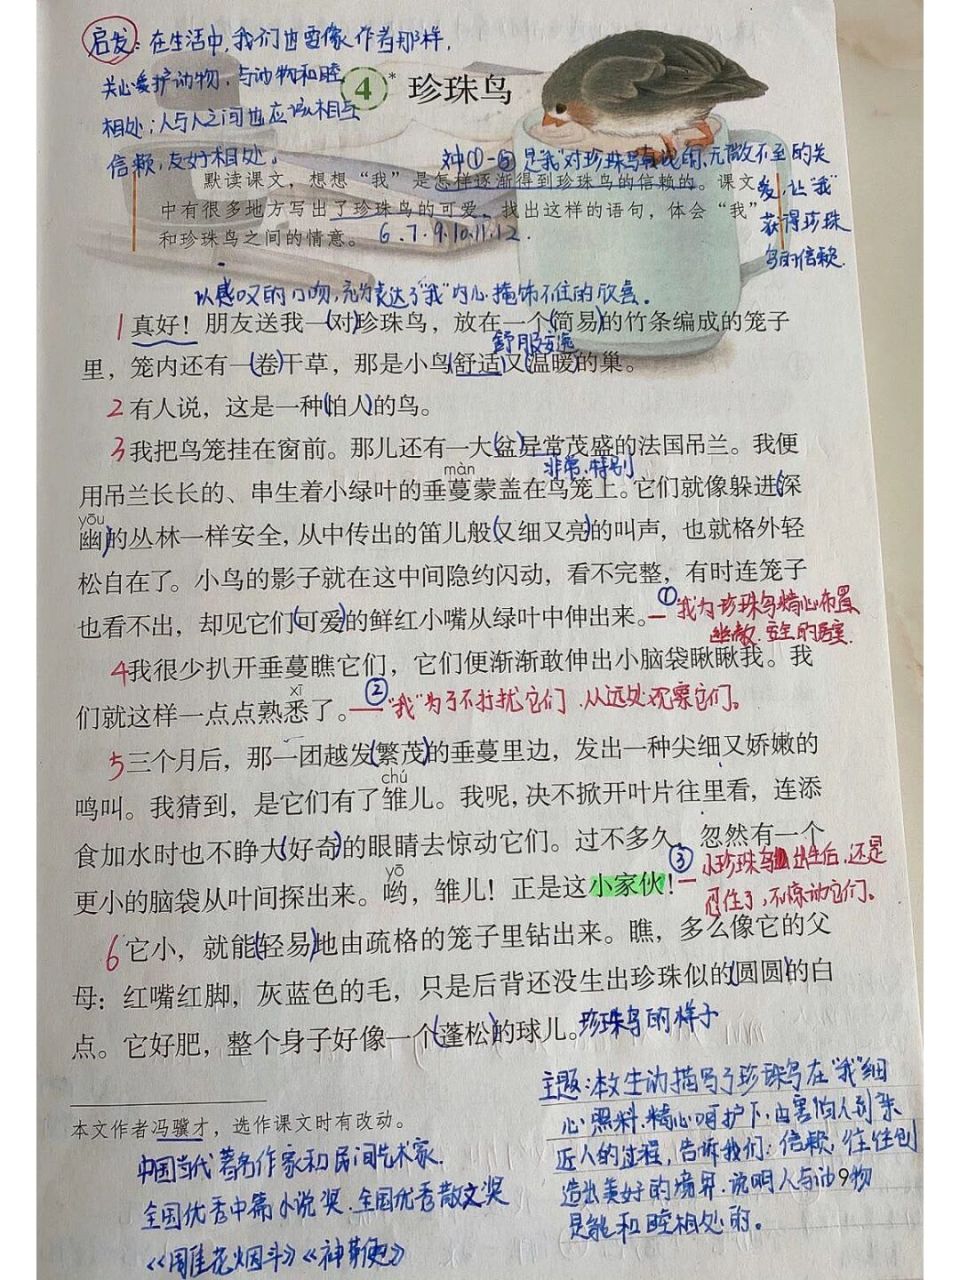 启发：在生活中,我们也要像作者那样,
关心爱护动物,与动物和睦
相处；人与人之间也应该相互
信赖,友好相处。
4* 珍珠鸟
对①-⑤ 是"我"对珍珠鸟 的,无微不至的关
爱,让"我"
获得珍珠
鸟的信赖.
默读课文，想想“我”是怎样逐渐得到珍珠鸟的信赖的。课文
中有很多地方写出了珍珠鸟的可爱，找出这样的语句，体会“我”
和珍珠鸟之间的情意。
6.7.9.10.11.12.
以感叹的口吻,充分表达了"我"内心掩饰不住的欣喜。
1 真好！朋友送我一(对)珍珠鸟，放在一个(简易)的竹条编成的笼子
舒服安逸
里，笼内还有一(卷)干草，那是小鸟(舒适)又(温暖)的巢。
2 有人说，这是一种(怕人)的鸟。
3 我把鸟笼挂在窗前。那儿还有一大(盆)异常茂盛的法国吊兰。我便
非常.特别
màn
用吊兰长长的、串生着小绿叶的垂蔓蒙盖在鸟笼上。它们就像躲进(深
yōu
幽)的丛林一样安全，从中传出的笛儿般(又细又亮)的叫声，也就格外轻
松自在了。小鸟的影子就在这中间隐约闪动，看不完整，有时连笼子
也看不出，却见它们(可爱)的鲜红小嘴从绿叶中伸出来。
①"我为珍珠鸟精心布置
幽敝.安全的居室.
4 我很少扒开垂蔓瞧它们，它们便渐渐敢伸出小脑袋瞅瞅我。我
xī
们就这样一点点熟悉了。
②"我"为了不打扰它们,从远处观察它们。
5 三个月后，那一团越发(繁茂)的垂蔓里边，发出一种尖细又娇嫩的
chú
鸣叫。我猜到，是它们有了雏儿。我呢，决不掀开叶片往里看，连添
食加水时也不睁大(好奇)的眼睛去惊动它们。过不多久，忽然有一个
yō
更小的脑袋从叶间探出来。哟，雏儿！正是这小家伙！
③小珍珠鸟出生后,还是
忍住了,不惊动它们。
6 它小，就能(轻易)地由疏格的笼子里钻出来。瞧，多么像它的父
母：红嘴红脚，灰蓝色的毛，只是后背还没生出珍珠似的(圆圆)的白
点。它好肥，整个身子好像一个(蓬松)的球儿。
珍珠鸟的样子
本文作者冯骥才，选作课文时有改动。
中国当代著名作家和民间艺术家.
全国优秀中篇小说奖.全国优秀散文奖
《雕花烟斗》《神鞭》
主题:本文生动描写了珍珠鸟在"我"细
心照料,精心呵护下,由害怕人到亲
近人的过程,告诉我们:信赖,往往创
造出美好的境界.说明人与动物
是能和睦相处的。
9